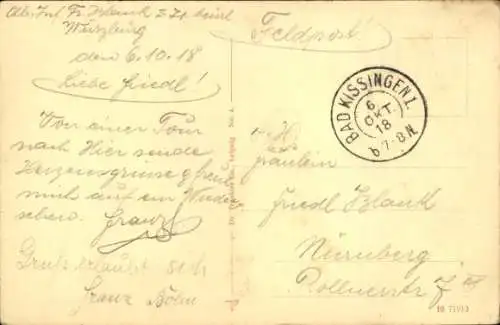 Fr. Blank z. Zt. beurl.
Würzburg
den 6.10.18
Liebe Friedl!
Von einer Tour
nach Hier sende
Herzensgrüsse & freue
mich auf ein Wieder
sehen.
Franz
Gruß erlaubt sich
Franz Böhm
Feldpost!
BAD KISSINGEN 1.
6
OKT.
18
b 7-8.N.
Fräulein
Friedl Blank
Nürnberg
Rollnerstr.